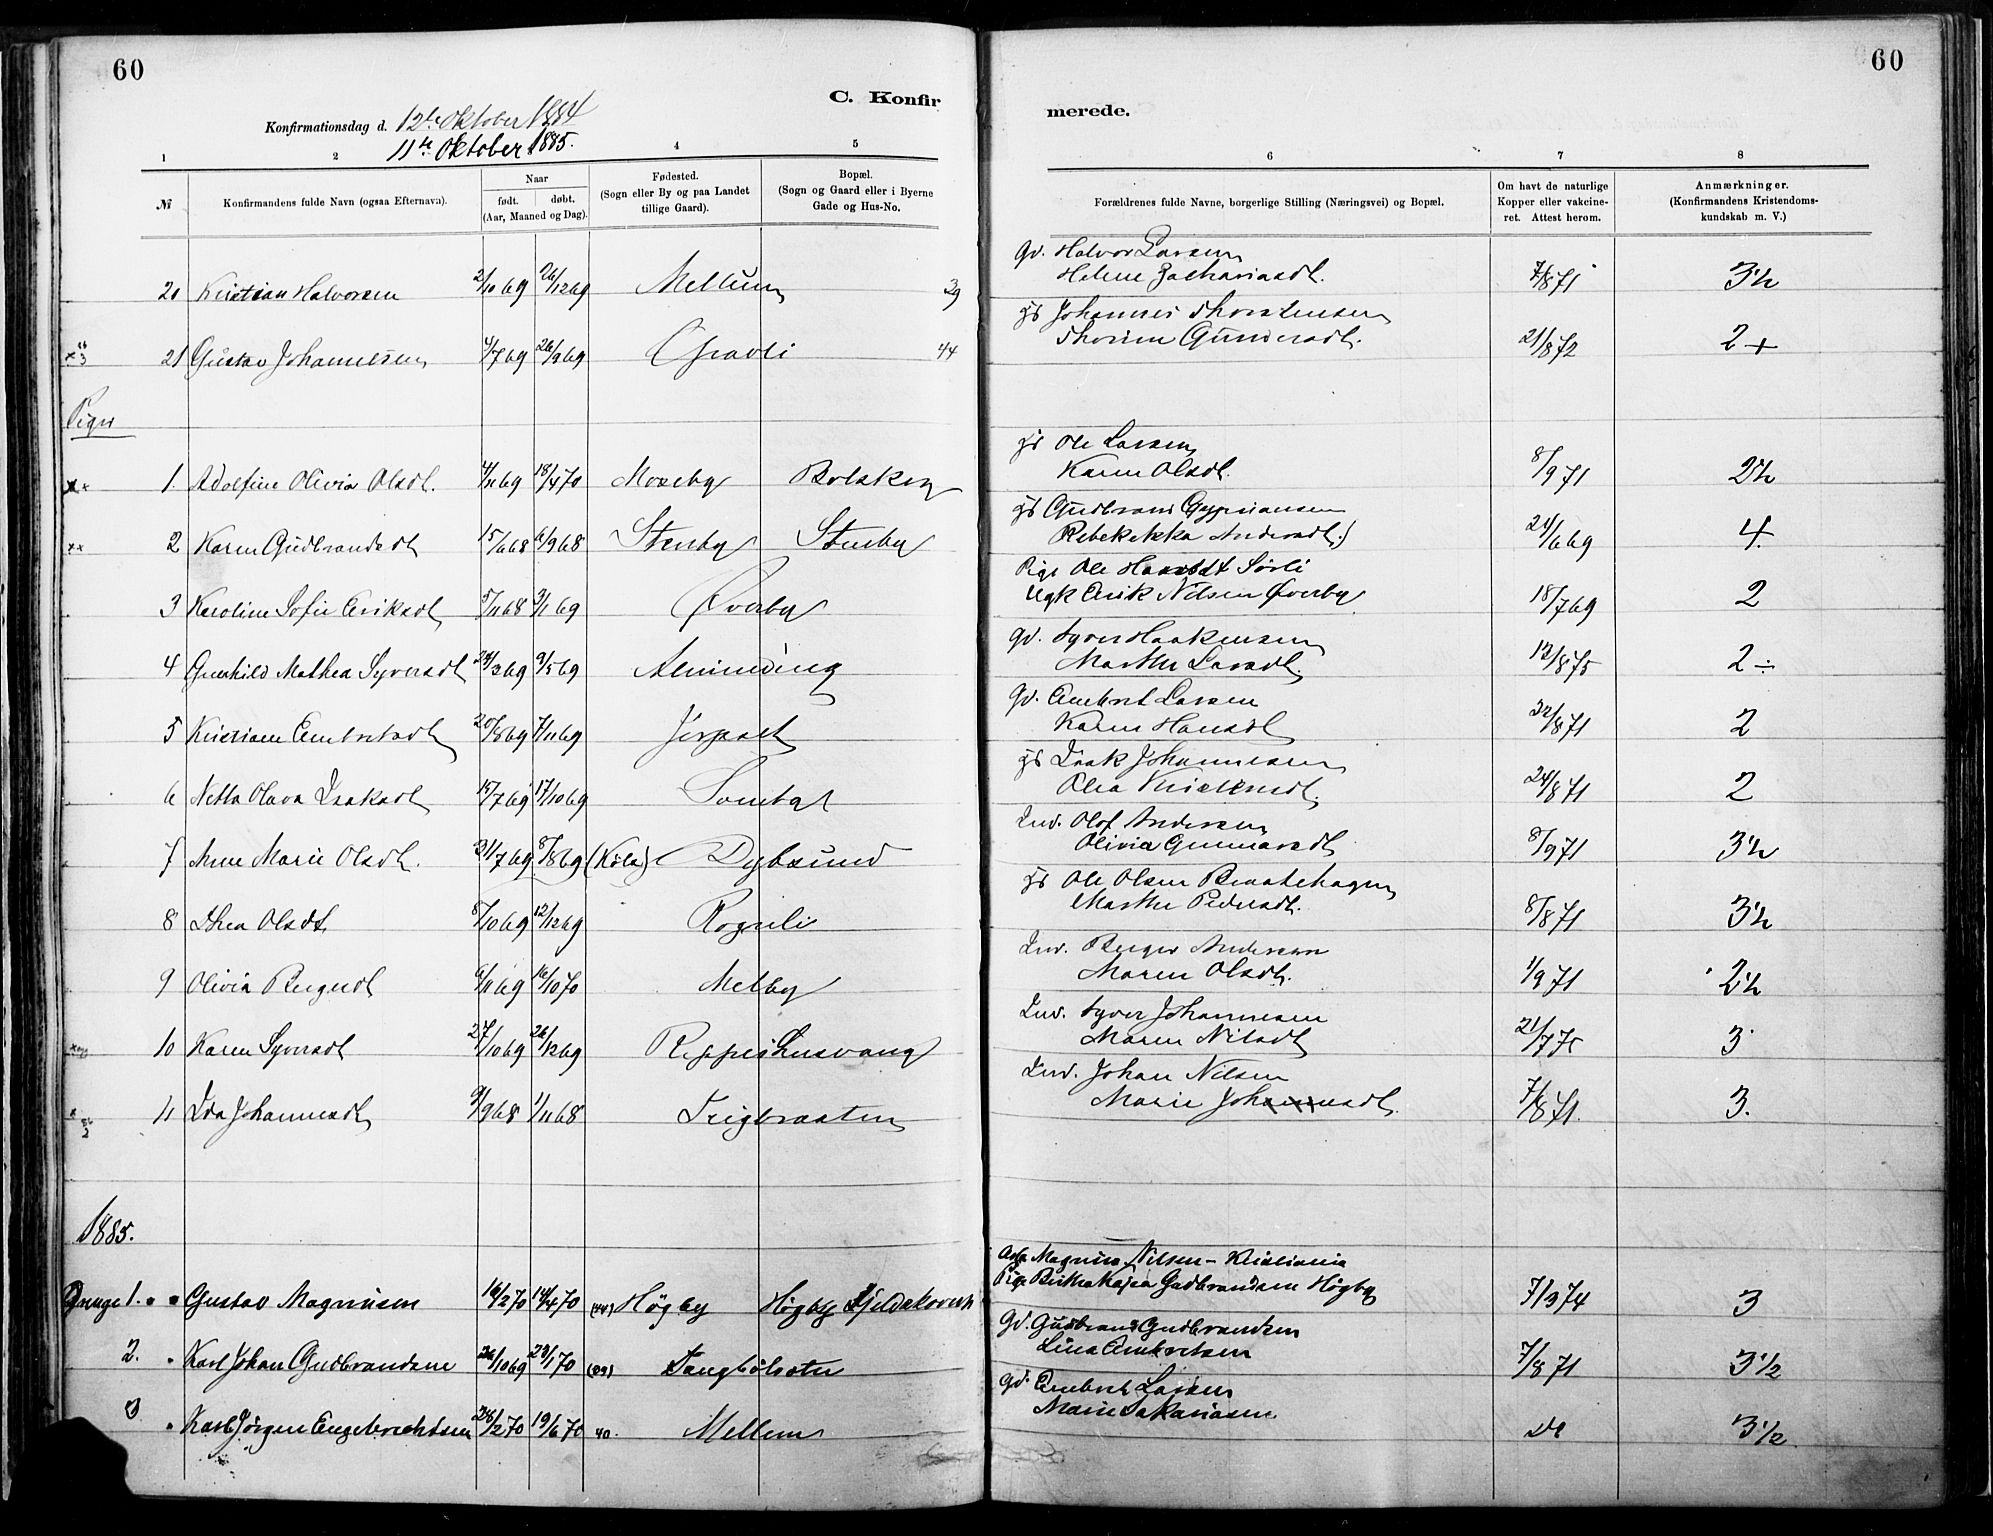 60
60
C. Konfir
merede.
Konfirmationsdag d. 12te Oktober 1884
11te Oktober 1885.
1 2 4 5 6 7 8
№
Konfirmandens fulde Navn (ogsaa Efternavn).
Naar
født. døbt.
(Aar, Maaned og Dag).
Fødested.
(Sogn eller By og paa Landet
tillige Gaard).
Bopæl.
(Sogn og Gaard eller i Byerne
Gade og Hus-No.
Forældrenes fulde Navne, borgerlige Stilling (Næringsvei) og Bopæl.
Om havt de naturlige
Kopper eller vakcine-
ret. Attest herom.
Anmærkninger.
(Konfirmandens Kristendoms-
kundskab m. V.)
Gd. Halvor Larsen
20 Kristian Halvorsen 2/10 69 26/12 69 Mellum 39 Helene Zachariasdt. 7/8 71 3½
gs Johannes Thorstensen
21 Gustav Johannesen 4/7 69 26/9 69 Gravli 44 Thorine Gundersdt. 21/8 72 2+
Piger
gs Ole Larsen
1. Adolfine Olivia Olsdt. 4/11 69 18/4 70 Moseby Karen Olsdt. 8/9 71 2½
gs Gudbrand
2 Karen Gudbrandsdt 15/6 68 6/9 68 Stenby Stenby Rebekekka Andersdt.) 21/6 69 4.
Pige Ole Sørli
3 Karoline Sofie Eriksdt 5/11 68 3/1 69 Øverby Ugk Erik Nilsen Øverby 18/7 69 2
Gd. Syver Haakensen
4 Gunhild Mathea Syversdt 24/3 69 9/5 69 Alminding Marthe Larsdt. 13/8 75 2÷
Gd. Embret Larsen
5 Kristiane Embretsdt 20/8 69 7/11 69 Jerpset Karen Hansdt 2
gs Isak Johannesen
6 Netta Olava Isaksdt 15/7 69 17/10 69 Olea 24/8 71 2
Ind. Olof Andersen
7 Anne Marie Olsdt. 31/7 69 8/8 69 (Köla) Dybsund Olivia Gunnarsdt 8/9 71 3½
gs Ole Olsen Braatehagen
8 Thea Olsdt 8/10 69 12/12 69 Rogneli Marthe Pedersdt. 8/8 71 3½
Ind. Berger Andersen
9 Olivia Bergersdt 6/11 69 16/10 70 Melby Maren Olsdt. 1/9 71 2½
Ind. Syver Johannesen
10 Karen Syversdt 27/10 69 26/12 69 Maren Nilsdt 21/7 75 3
Ind. Johan Nilsen
11 Ida Johannesdt 9/9 68 1/11 68 Trigbraaten Marie 7/8 71. 3.
1885.
Magnus Nilsen – Kristiania
Drenge 1. Gustav Magnusen 16/2 70 14/4 70 (44) Högby Högby Pige Birthe Kajsa Gudbrandsen Högby 7/3 74 3
Gd. Gudbrand Gudbrandsen
2. Karl Johan Gudbrandsen 26/10 69 23/1 70 (39) Lina Embretsen 7/8 71 3½
Gd. Embret Larsen
3 Karl Jörgen Engebrechtsen 28/2 70 19/6 70 40. Mellem Marie Sakariasen 3½